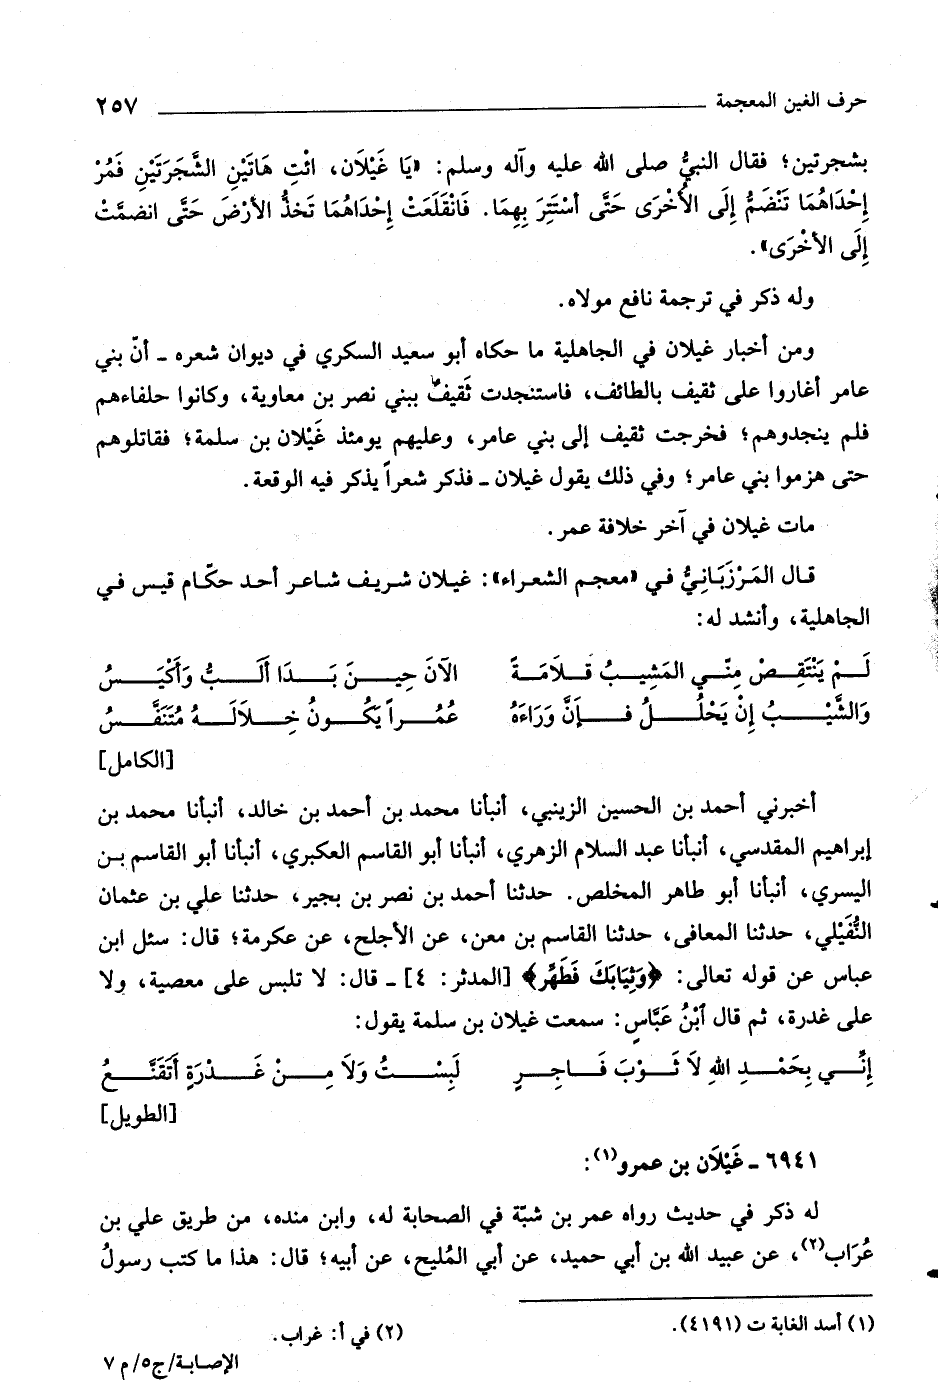 حرف الغين المعجمة ٢٥٧
بشجرتين؛ فقال النبيُّ صلى الله عليه وآله وسلم: «يَا غَيْلَان، ائْتِ هَاتَيْنِ الشَّجَرَتَيْنِ فَمُرْ
إِحْدَاهُمَا تَنْضَمُّ إِلَى الأُخْرَى حَتَّى أَسْتَتِرَ بِهِمَا. فَانْقَلَعَتْ إِحْدَاهُمَا تَخذُّ الأرْضَ حَتَّى انضمَّتْ
إِلَى الأخْرَى».
وله ذكر في ترجمة نافع مولاه.
ومن أخبار غيلان في الجاهلية ما حكاه أبو سعيد السكري في ديوان شعره ـ أنّ بني
عامر أغاروا على ثقيف بالطائف، فاستنجدت ثَقيفٌ ببني نصر بن معاوية، وكانوا حلفاءهم
فلم ينجدوهم؛ فخرجت ثقيف إلى بني عامر، وعليهم يومئذ غَيْلان بن سلمة؛ فقاتلوهم
حتى هزموا بني عامر؛ وفي ذلك يقول غيلان ـ فذكر شعراً يذكر فيه الوقعة.
مات غيلان في آخر خلافة عمر.
قال المَرْزَبَانِيُّ في «معجم الشعراء»: غيلان شريف شاعر أحد حكّام قيس في
الجاهلية، وأنشد له:
لَمْ يَنْتَقِصْ مِنِّي المَشِيبُ قلَامَةً الآنَ حِينَ بَدَا أَلَبُّ وَأَكْيَسُ
وَالشَّيْبُ إِنْ يَحْلُلُ فَإِنَّ وَرَاءَهُ عُمُراً يَكُونُ خِلَالَهُ مُتَنَفَّسُ
[الكامل]
أخبرني أحمد بن الحسين الزينبي، أنبأنا محمد بن أحمد بن خالد، أنبأنا محمد بن
إبراهيم المقدسي، أنبأنا عبد السلام الزهري، أنبأنا أبو القاسم العكبري، أنبأنا أبو القاسم بن
اليسري، أنبأنا أبو طاهر المخلص. حدثنا أحمد بن نصر بن بجير، حدثنا علي بن عثمان
النُّفَيْلي، حدثنا المعافى، حدثنا القاسم بن معن، عن الأجلح، عن عكرمة؛ قال: سئل ابن
عباس عن قوله تعالى: ﴿وَثِيَابَكَ فَطَهِّر﴾ [المدثر: ٤] ـ قال: لا تلبس على معصية، ولا
على غدرة، ثم قال ٱبْنُ عَبَّاسٍ: سمعت غيلان بن سلمة يقول:
إِنِّي بِحَمْدِ اللهِ لاَ ثَوْبَ فَاجِرٍ لَبِسْتُ وَلاَ مِنْ غَدْرَةٍ أَتَقَنَّعُ
[الطويل]
٦٩٤١ ـ غَيْلَان بن عمرو(١):
له ذكر في حديث رواه عمر بن شبّة في الصحابة له، وابن منده، من طريق علي بن
عُرَاب(٢)، عن عبيد الله بن أبي حميد، عن أبي المُليح، عن أبيه؛ قال: هذا ما كتب رسولُ
(١) أسد الغابة ت (٤١٩١). (٢) في أ: غراب.
الإصابة/ج٥/م ٧